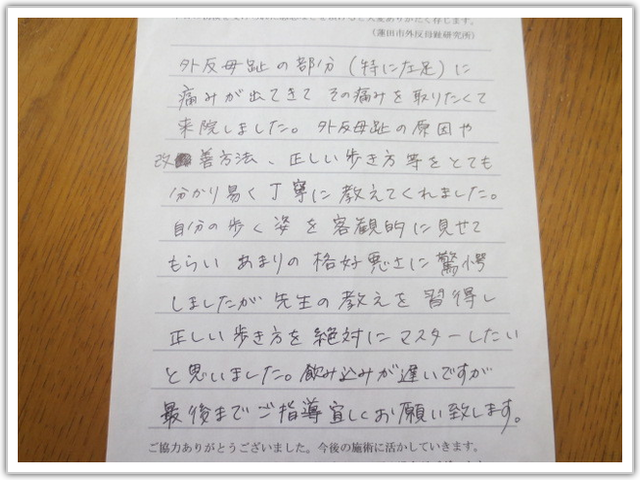 (蓮田市外反母趾研究所)
外反母趾の部分(特に左足)に
痛みが出てきて その痛みを取りたくて
来院しました。外反母趾の原因や
改善方法、正しい歩き方等をとても
分かり易く丁寧に教えてくれました。
自分の歩く姿を客観的に見せて
もらい あまりの格好悪さに驚愕
しましたが先生の教えを習得し
正しい歩き方を絶対にマスターしたい
と思いました。飲み込みが遅いですが
最後までご指導宜しくお願い致します。
ご協力ありがとうございました。今後の施術に活かしていきます。